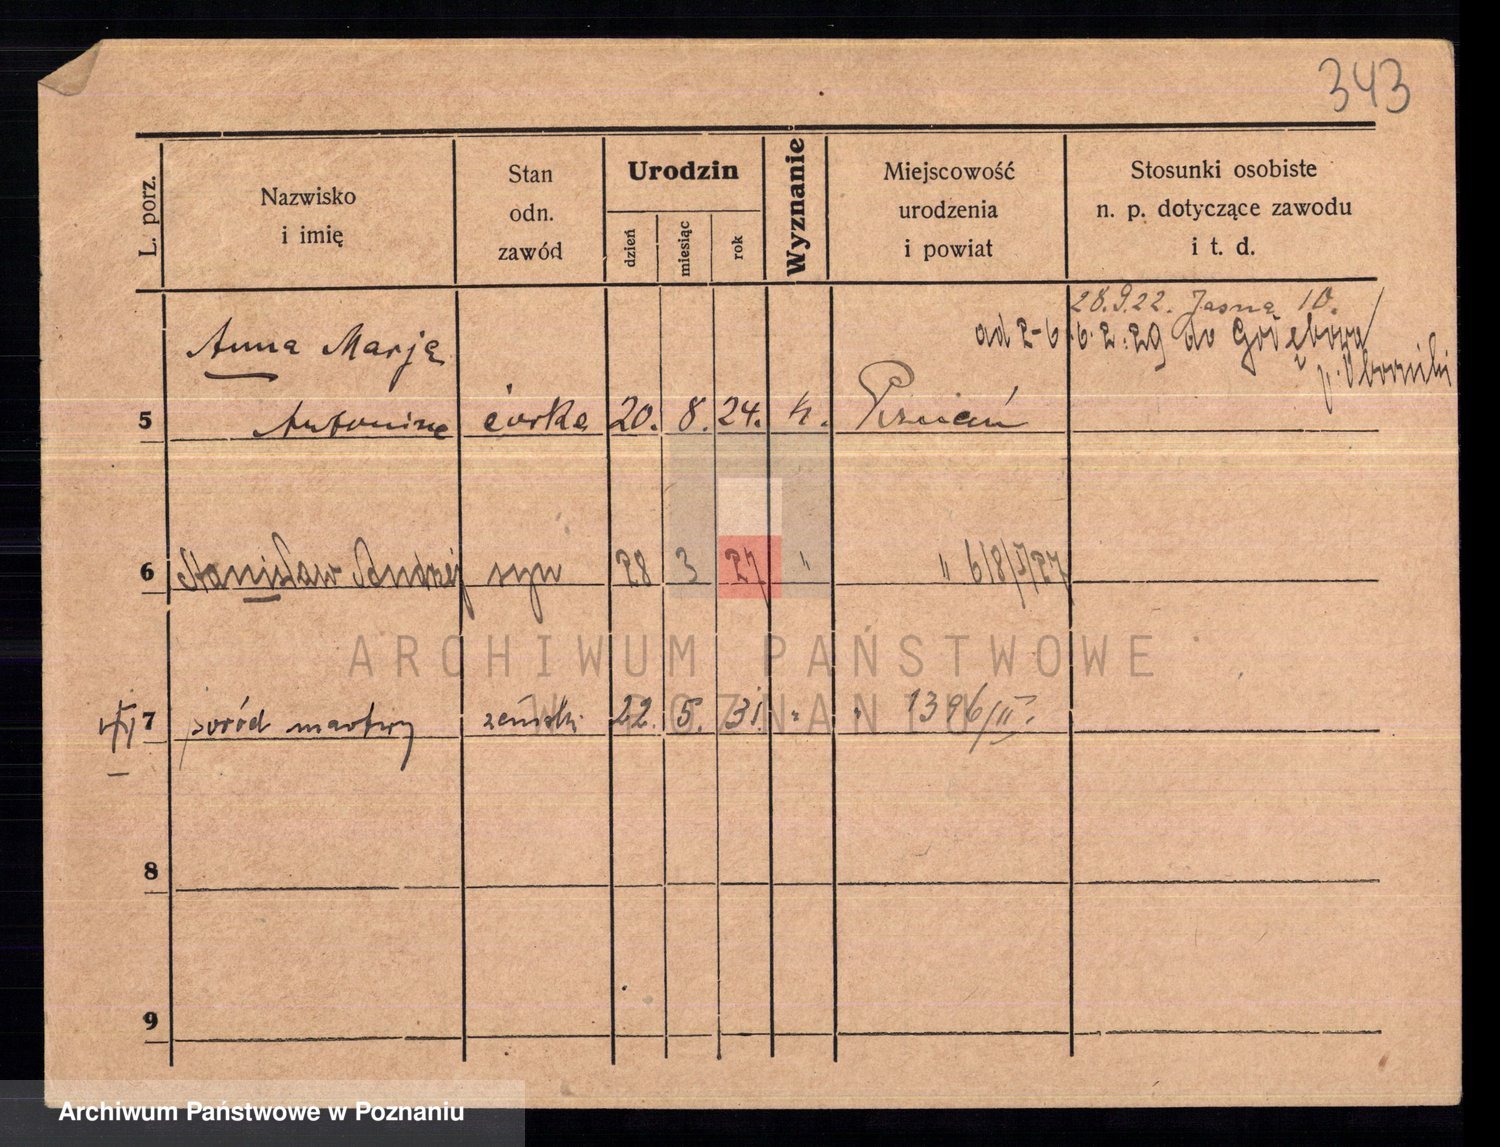 343
L. porz.
Nazwisko
i imię
Stan
odn.
zawód
Urodzin
dzień
miesiąc
rok
Wyznanie
Miejscowość
urodzenia
i powiat
Stosunki osobiste
n. p. dotyczące zawodu
i t. d.
28.9.22. Jasna 10.
6.2.29 do Gołębowa
p. Oborniki
Anna Marja
5 Antonina córka 20. 8. 24. k. Poznań
6 Stanisław Andrzej syn 28 3 27 " "
7 poród martwy żeński 22. 5. 31. " " 1396/II.
8
9
ARCHIWUM PAŃSTWOWE
W POZNANIU
Archiwum Państwowe w Poznaniu